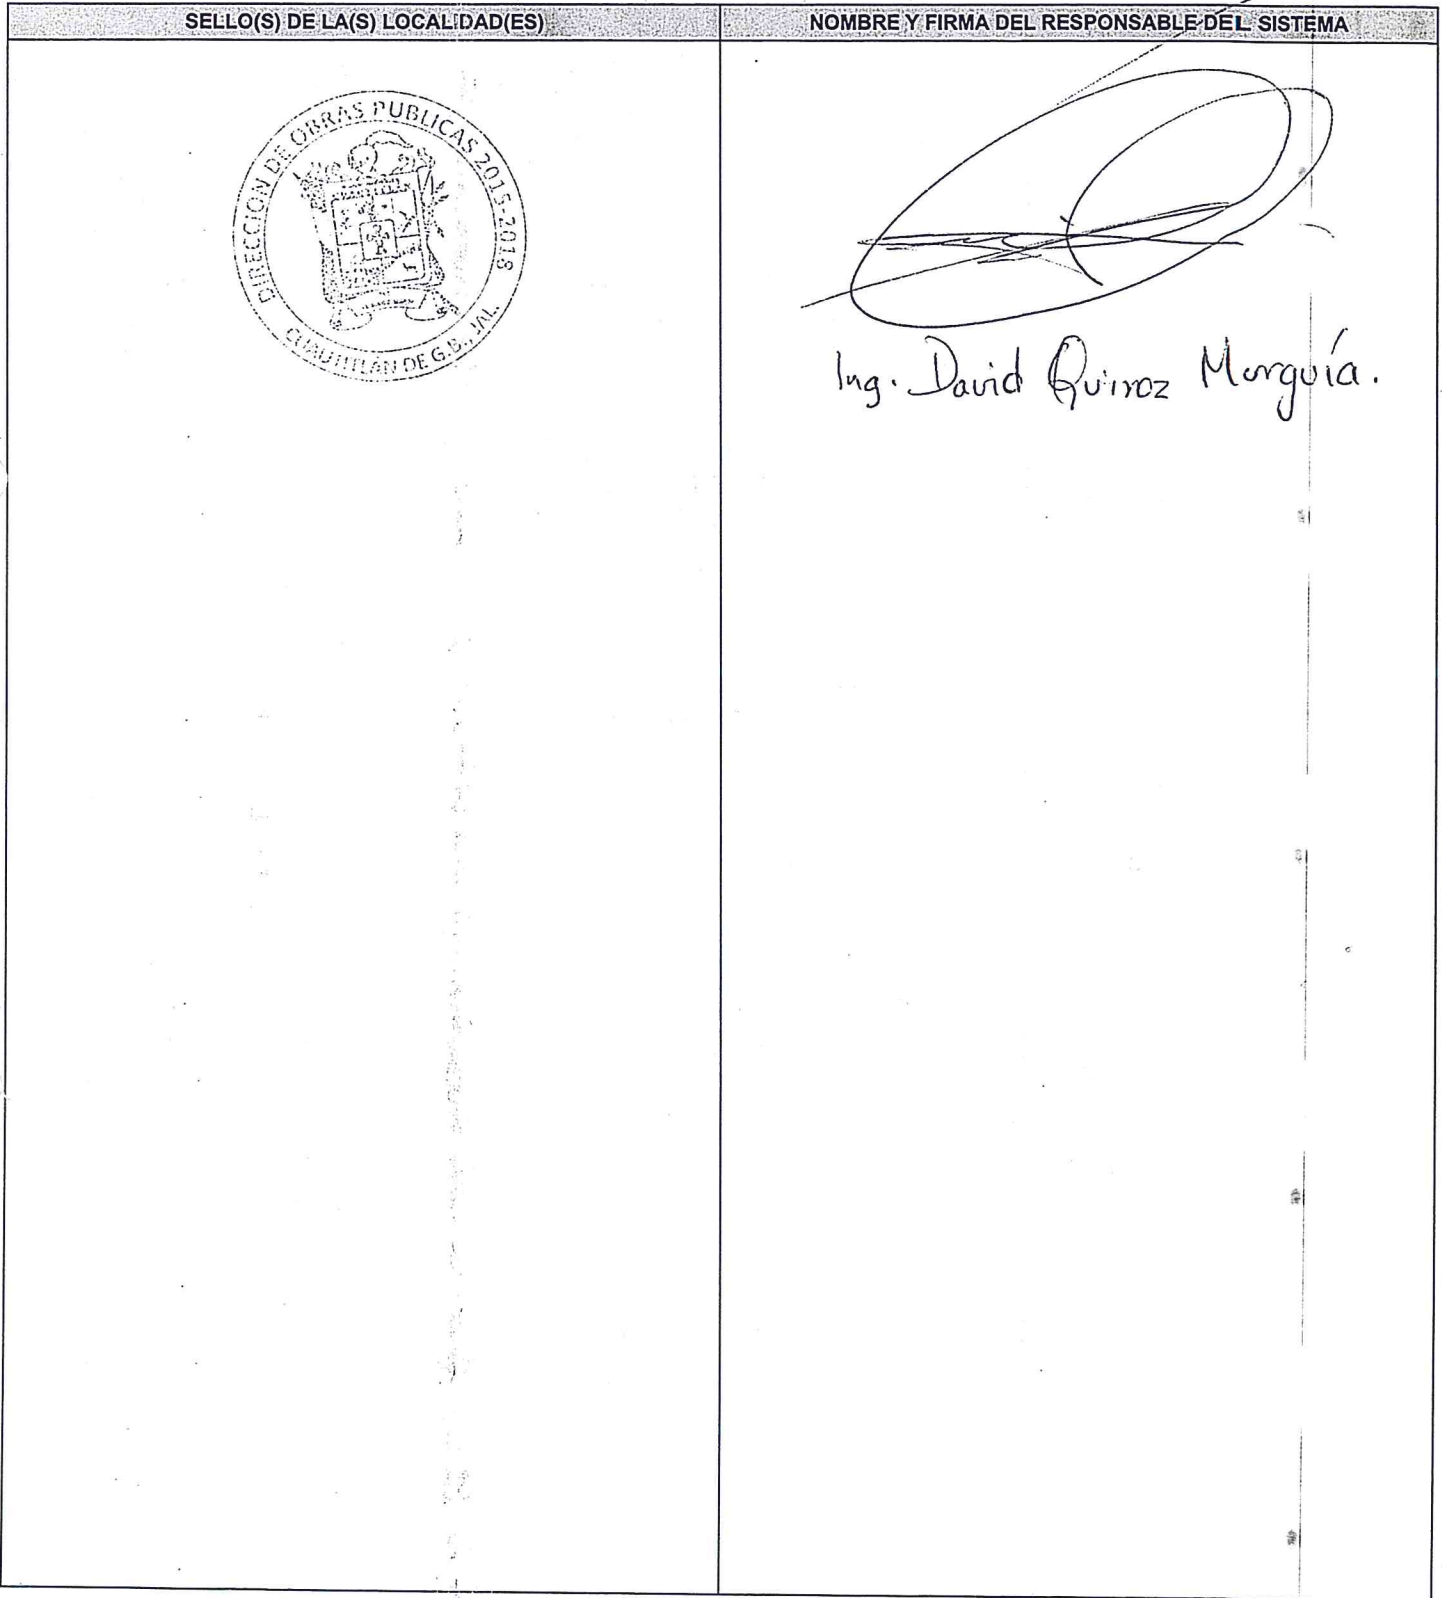 SELLO(S) DE LA(S) LOCALIDAD(ES)
NOMBRE Y FIRMA DEL RESPONSABLE DEL SISTEMA
DIRECCION DE OBRAS PUBLICAS 2015-2018
CUAUTITLÁN DE G.B., JAL.
Ing. David Quiroz Murguía.